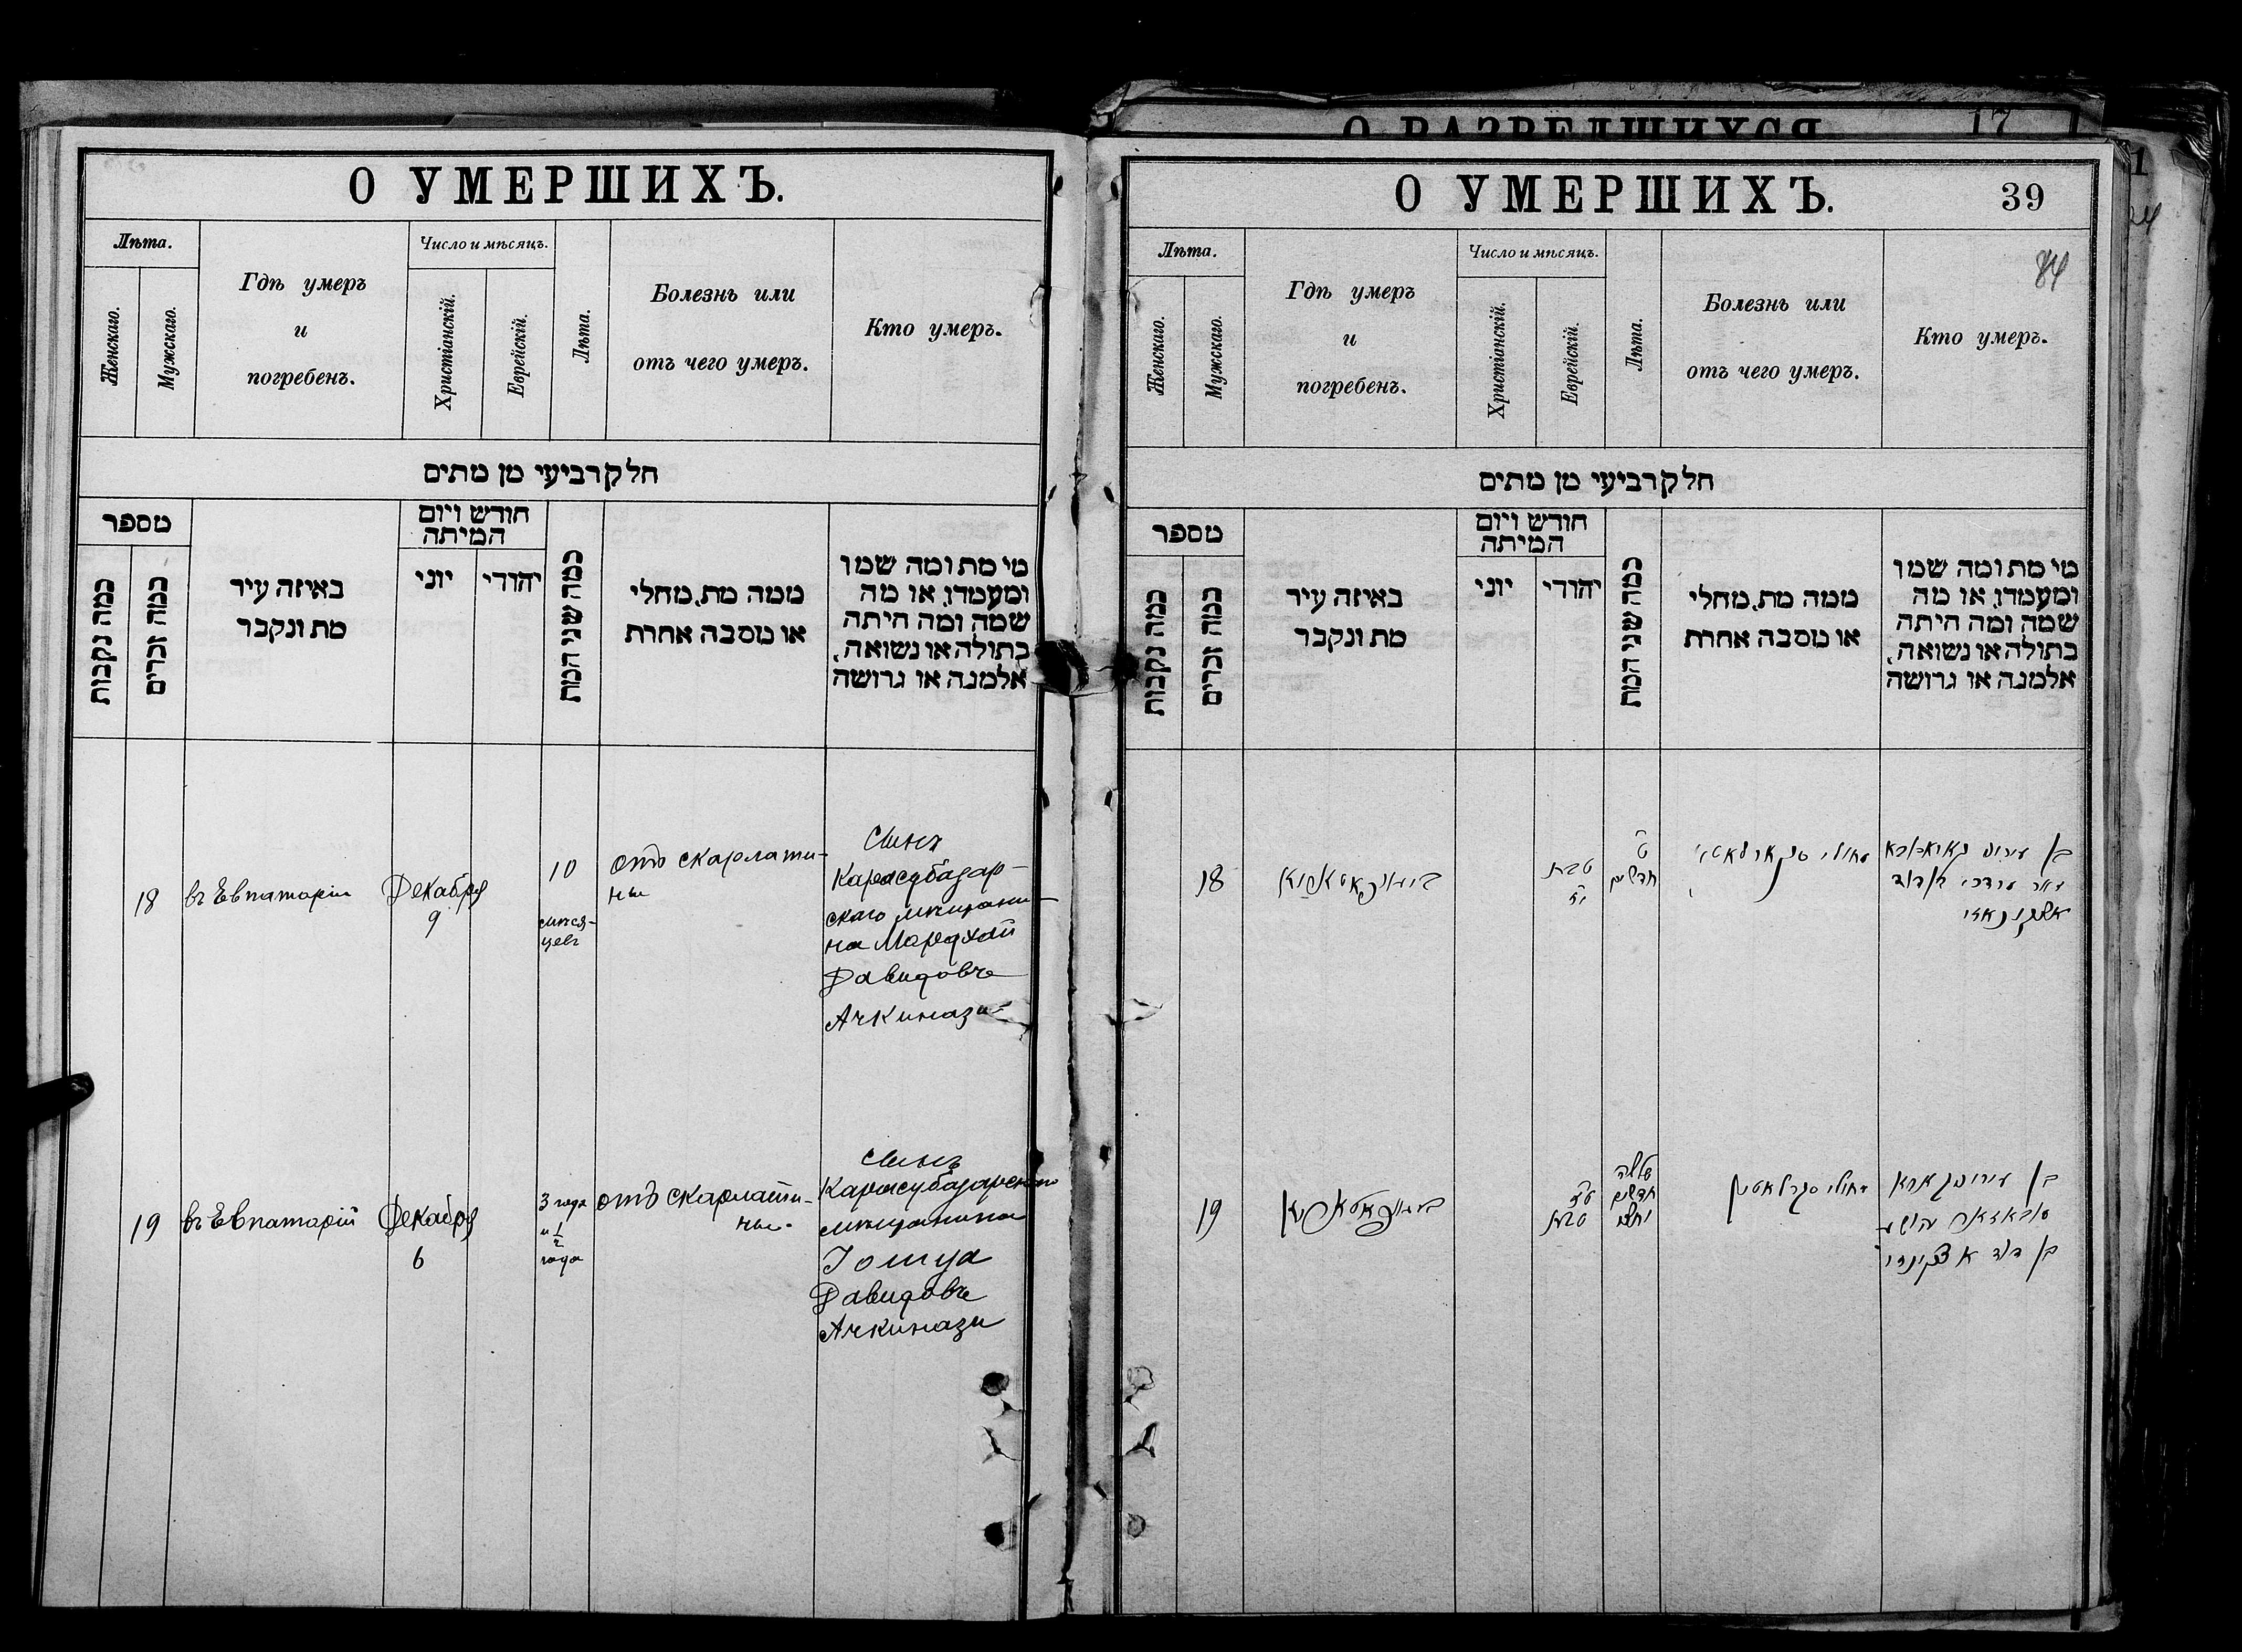 О РАЗВЕДШИХСЯ 17
О УМЕРШИХЪ.
Лѣта.
Женскаго.
Мужскаго.
Гдѣ умеръ
и
погребенъ.
Число и мѣсяцъ.
Христіанскій.
Еврейскій.
Лѣта.
Болезнь или
отъ чего умеръ.
Кто умеръ.
חלק רביעי מן מתים
מספר
כמה נקבות
כמה זכרים
באיזה עיר
מת ונקבר
חודש ויום
המיתה
יוני
יהודי
כמה שני המת
ממה מת, מחלי
או מסבה אחרת
מי מת ומה שמו
ומעמדו, או מה
שמה ומה היתה
בתולה או נשואה,
אלמנה או גרושה
18
въ Евпаторіи
Декабря
9
10
мѣся-
цевъ
отъ скарлати-
ны
Сынъ
Карасубазар-
скаго мѣщани-
на Мардхай
Давидовъ
Ачкинази
19
въ Евпаторій
Декабря
6
3 года
и 1/2
года
отъ скарлати-
ны.
Сынъ
Карасубазарскаго
мѣщанина
Іошуа
Давидовъ
Ачкинази
О УМЕРШИХЪ.
39
84
Лѣта.
Женскаго.
Мужскаго.
Гдѣ умеръ
и
погребенъ.
Число и мѣсяцъ.
Христіанскій.
Еврейскій.
Лѣта.
Болезнь или
отъ чего умеръ.
Кто умеръ.
חלק רביעי מן מתים
מספר
כמה נקבות
כמה זכרים
באיזה עיר
מת ונקבר
חודש ויום
המיתה
יוני
יהודי
כמה שני המת
ממה מת, מחלי
או מסבה אחרת
מי מת ומה שמו
ומעמדו, או מה
שמה ומה היתה
בתולה או נשואה,
אלמנה או גרושה
18
טבת
חדשים
מחולי
בן
מרדכי
19
טבת
שלשה
חדשים
מחולי
בן
בן דוד